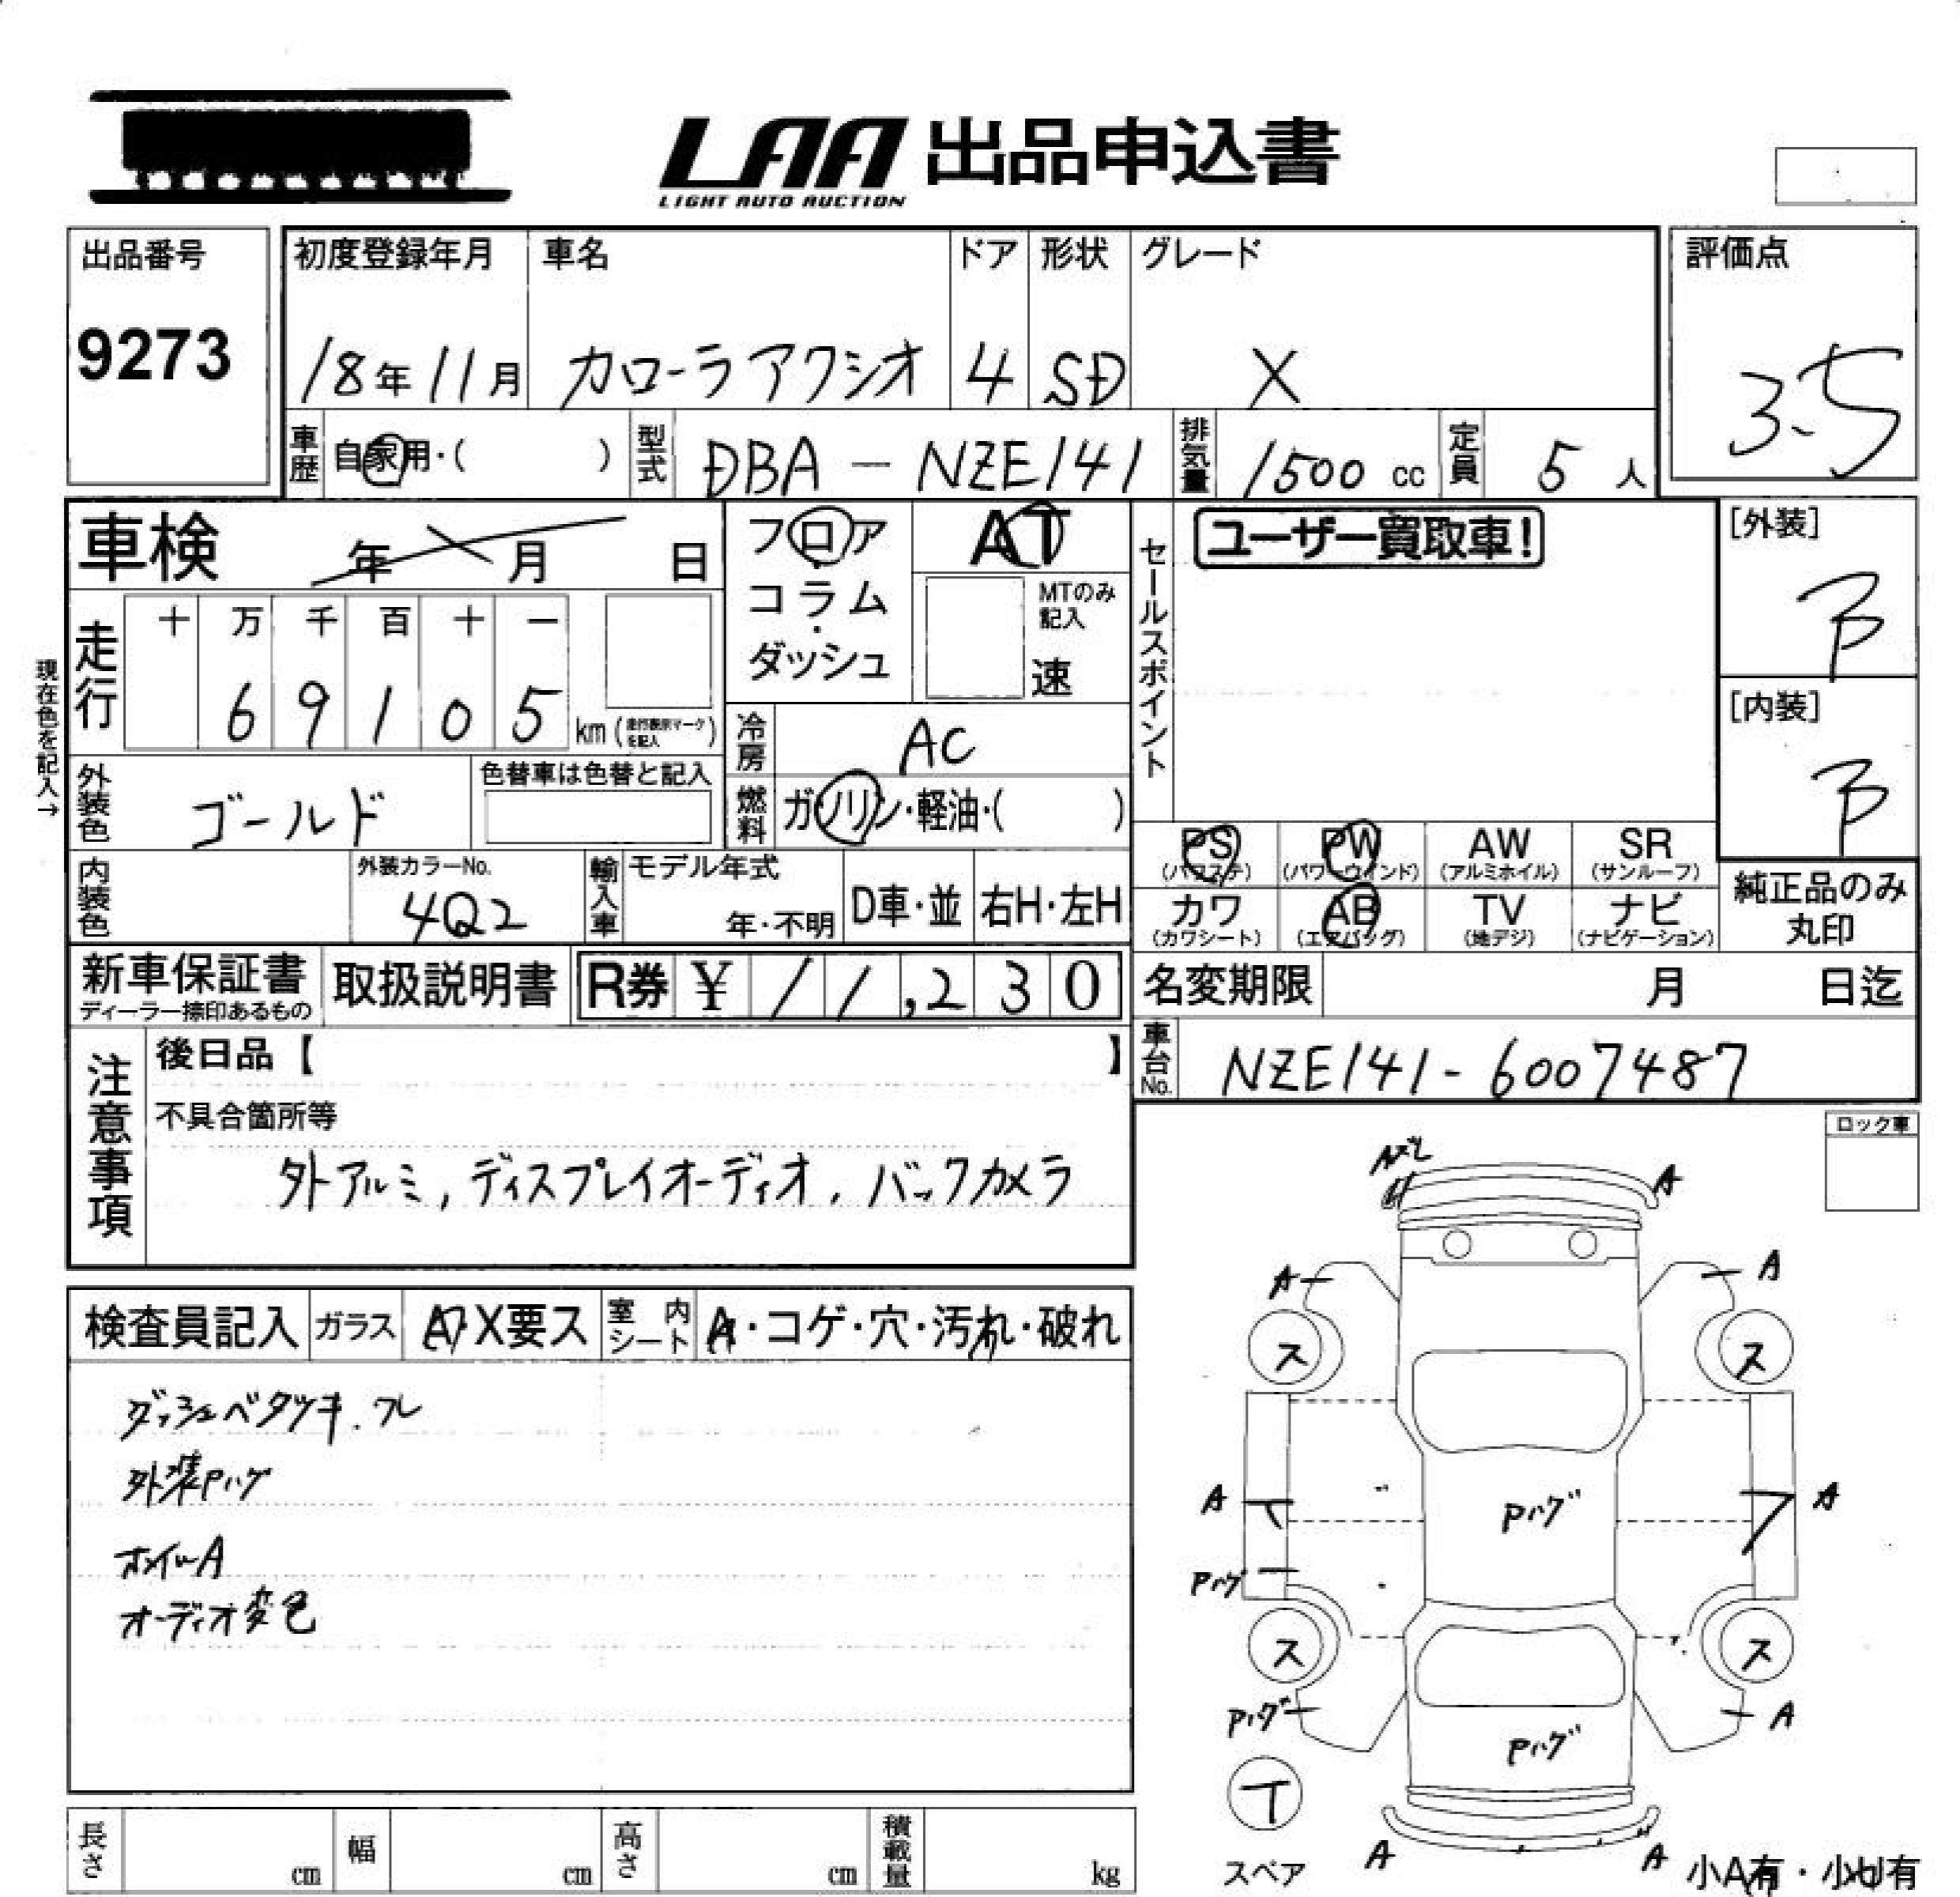 LAA 出品申込書
LIGHT AUTO AUCTION
出品番号
9273
初度登録年月 車名 ドア 形状 グレード
18年11月 カローラアクシオ 4 SD X
評価点
3.5
車歴 自家用・( ) 型式 DBA-NZE141 排気量 1500 cc 定員 5 人
車検 年 月 日
フロア
・
コラム
・
ダッシュ
AT
MTのみ
記入
速
セールスポイント
ユーザー買取車!
[外装]
B
[内装]
B
現在色を記入→
走行 十 万 千 百 十 一
6 9 1 0 5 km (走行表示マークを記入)
冷房 AC
外装色 ゴールド 色替車は色替と記入
燃料 ガソリン・軽油・( )
PS (パワステ) PW (パワーウインド) AW (アルミホイル) SR (サンルーフ)
カワ (カワシート) AB (エアバッグ) TV (地デジ) ナビ (ナビゲーション)
純正品のみ
丸印
内装色 外装カラーNo. 4Q2 輸入車 モデル年式 年・不明 D車・並 右H・左H
新車保証書
ディーラー捺印あるもの
取扱説明書 R券 ¥ 11,230
名変期限 月 日迄
車台No. NZE141-6007487
注意事項
後日品【 】
不具合箇所等
外アルミ,ディスプレイオーディオ,バックカメラ
ロック車
検査員記入 ガラス A・X要ス 室内シート A・コゲ・穴・汚れ・破れ
ダッシュベタツキ.ワレ
外装Pハゲ
ホイルA
オーディオ変色
A
A A
ス ス
A Pハゲ A
Pハゲ
ス ス
Pハゲ Pハゲ A
T
スペア
A A
小A有・小U有
長さ cm 幅 cm 高さ cm 積載量 kg